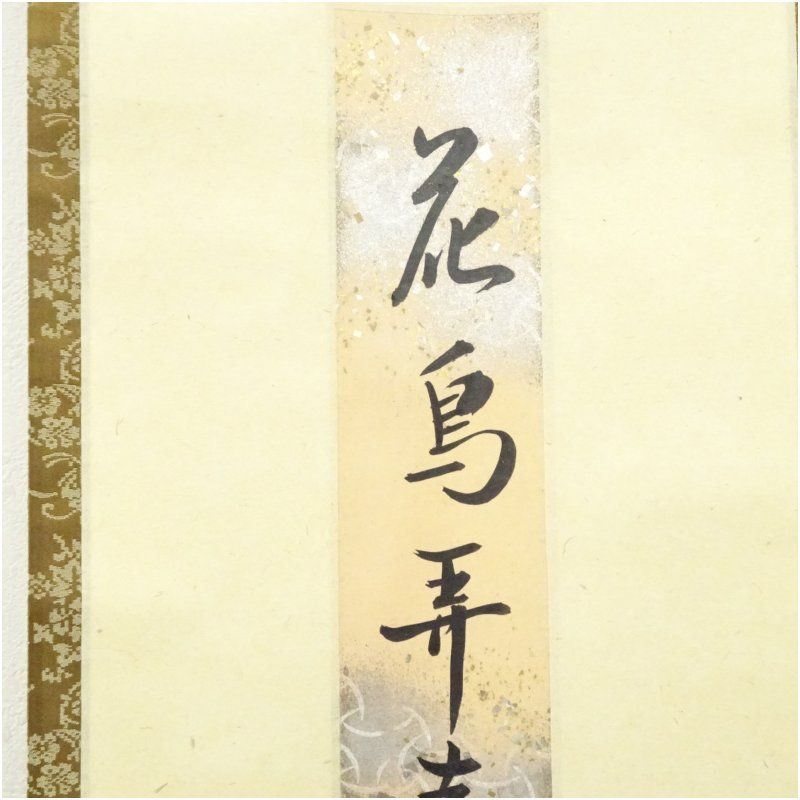 花鳥弄